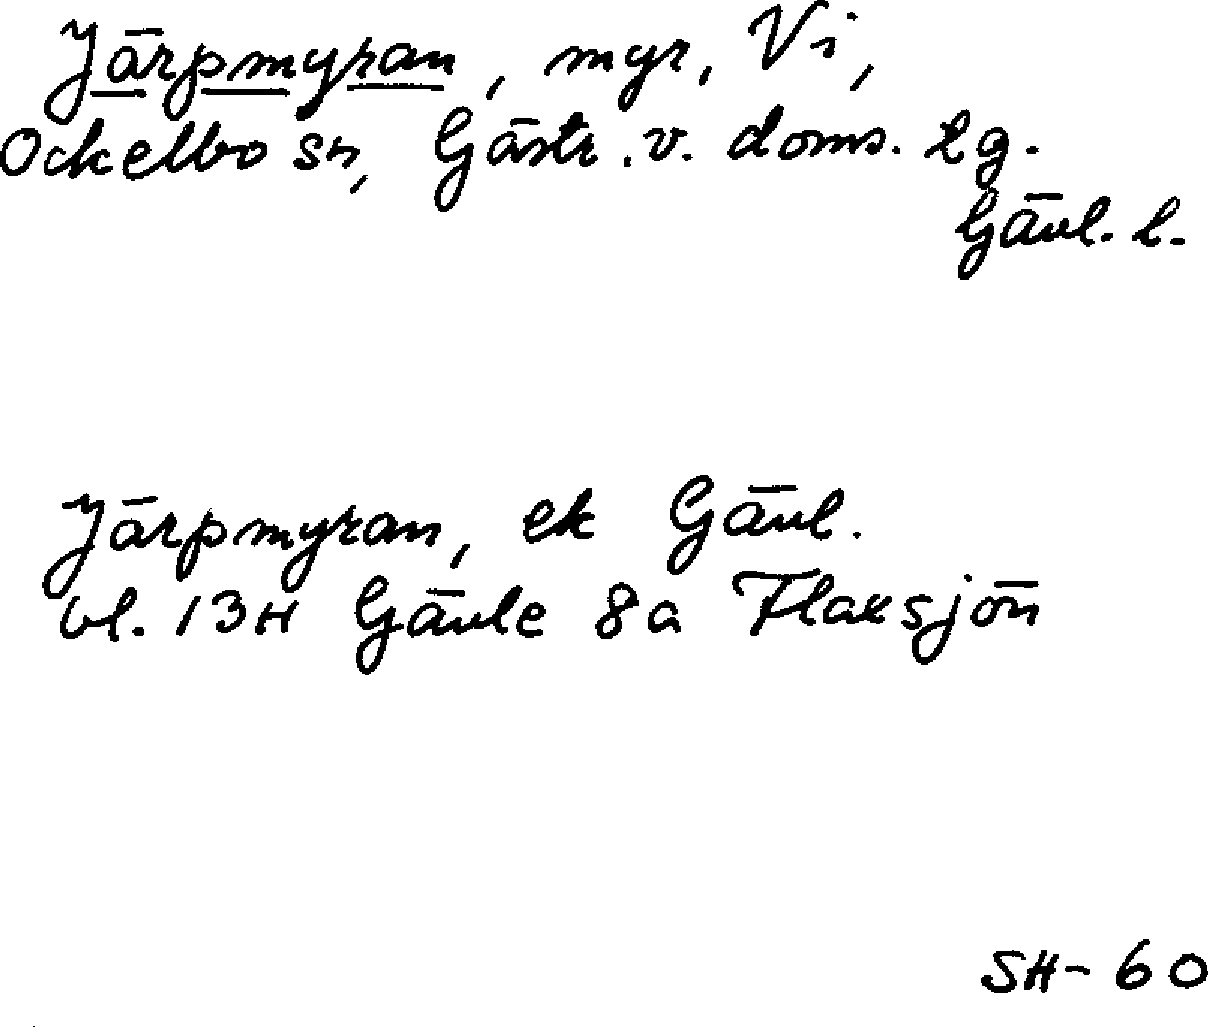 Järpmyran, myr, Vi,
Ockelbo sn, Gästr. v. doms. lg.
Gävl. l.
Järpmyran, ek Gävl.
bl. 13H Gävle 8a Flaxsjön
SH-60